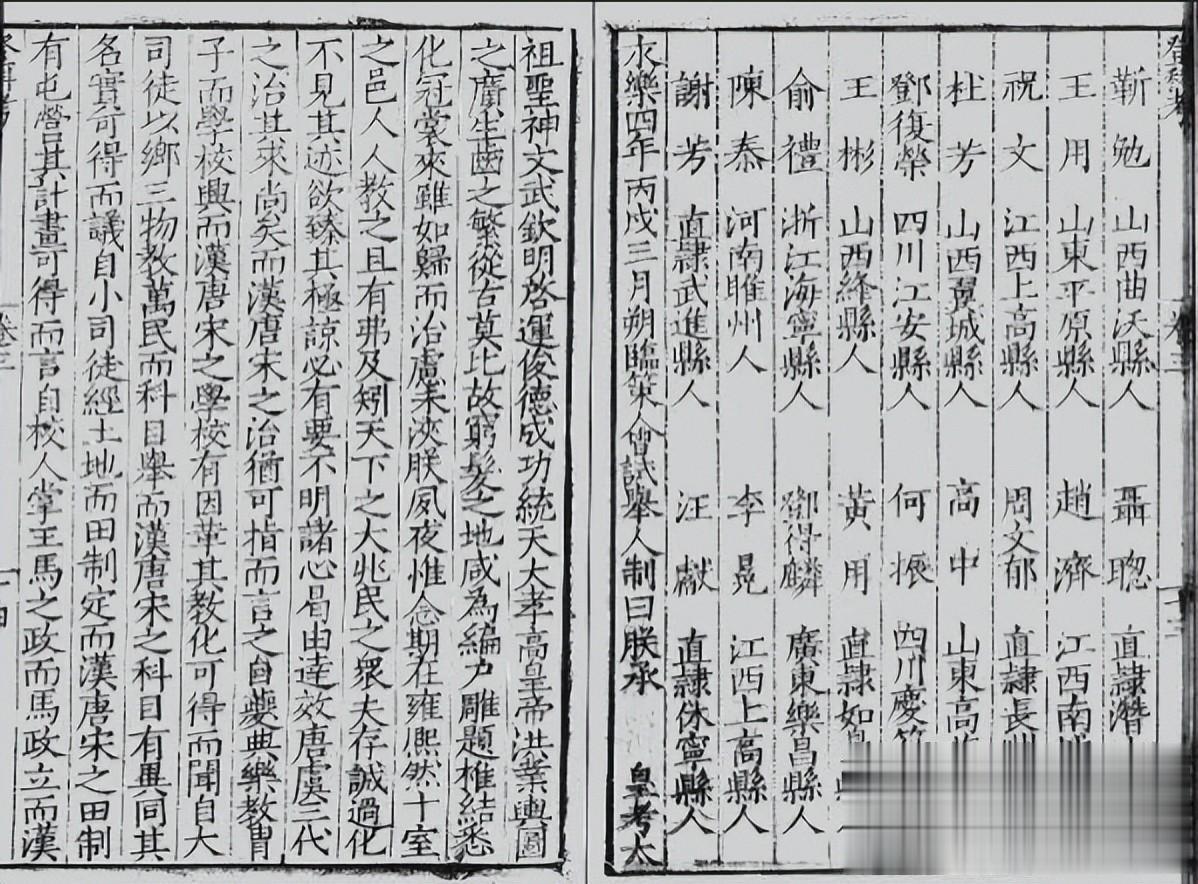 靳勉 山西曲沃縣人 聶聦 直隷濳
王用 山東平原縣人 趙濟 江西南
祝文 江西上高縣人 周文郁 直隷長
杜芳 山西翼城縣人 高中 山東高
鄧復榮 四川江安縣人 何振 四川慶
王彬 山西絳縣人 黃用 直隷如
俞禮 浙江海寧縣人 鄧得麟 廣東樂昌縣人
陳泰 河南睢州人 李晃 江西上高縣人
謝芳 直隷武進縣人 汪獻 直隷休寧縣人
永樂四年丙戌三月朔臨策會試舉人制曰朕承 皇考太
祖聖神文武欽明啓運俊德成功統天大孝高皇帝洪業輿圖
之廣生齒之繁從古莫比故窮髮之地咸為編户雕題椎結悉
化冠裳來雖如歸而治慮未浹朕夙夜惟念期在雍熙然十室
之邑人人教之且有弗及矧天下之大兆民之衆夫存誠過化
不見其迹欲臻其極諒必有要不明諸心曷由逹效唐虞三代
之治其來尚矣而漢唐宋之治猶可指而言之自夔典樂教胄
子而學校興而漢唐宋之學校有因革其教化可得而聞自大
司徒以鄉三物教萬民而科目舉而漢唐宋之科目有異同其
名實可得而議自小司徒經土地而田制定而漢唐宋之田制
有屯營其計畫可得而言自校人掌王馬之政而馬政立而漢
卷三